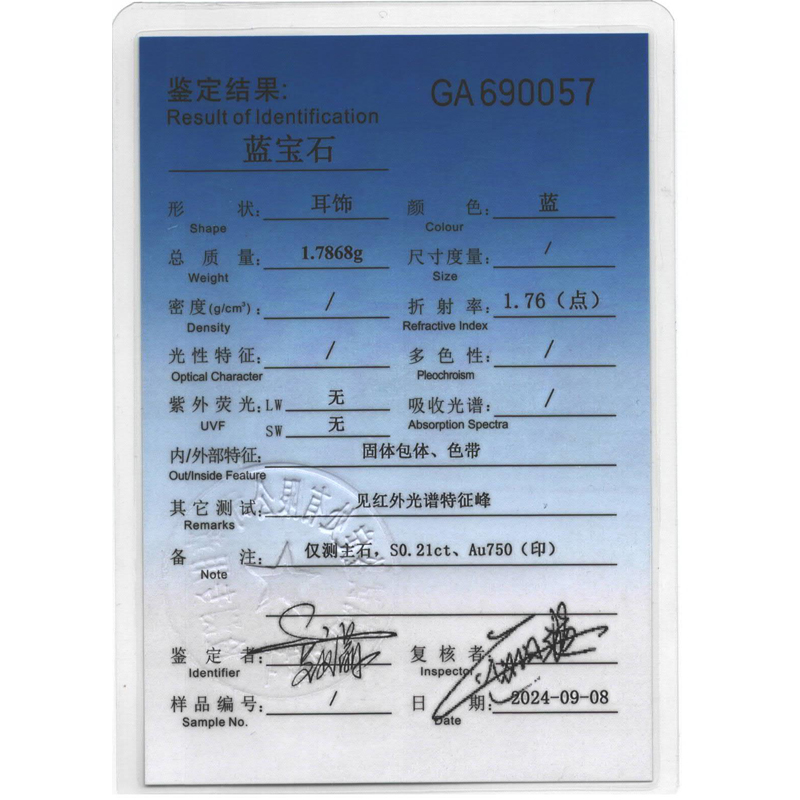 鉴定结果:
GA690057
Result of Identification
蓝宝石
形 状: 耳饰 颜 色: 蓝
Shape Colour
总 质 量: 1.7868g 尺寸度量: /
Weight Size
密度(g/cm³): / 折 射 率: 1.76（点）
Density Refractive Index
光性特征: / 多 色 性: /
Optical Character Pleochroism
紫外荧光: LW 无 吸收光谱: /
UVF SW 无 Absorption Spectra
内/外部特征: 固体包体、色带
Out/Inside Feature
其它测试: 见红外光谱特征峰
Remarks
备 注: 仅测主石，S0.21ct、Au750（印）
Note
鉴 定 者: 复 核 者:
Identifier Inspector
样品编号: / 日 期: 2024-09-08
Sample No. Date